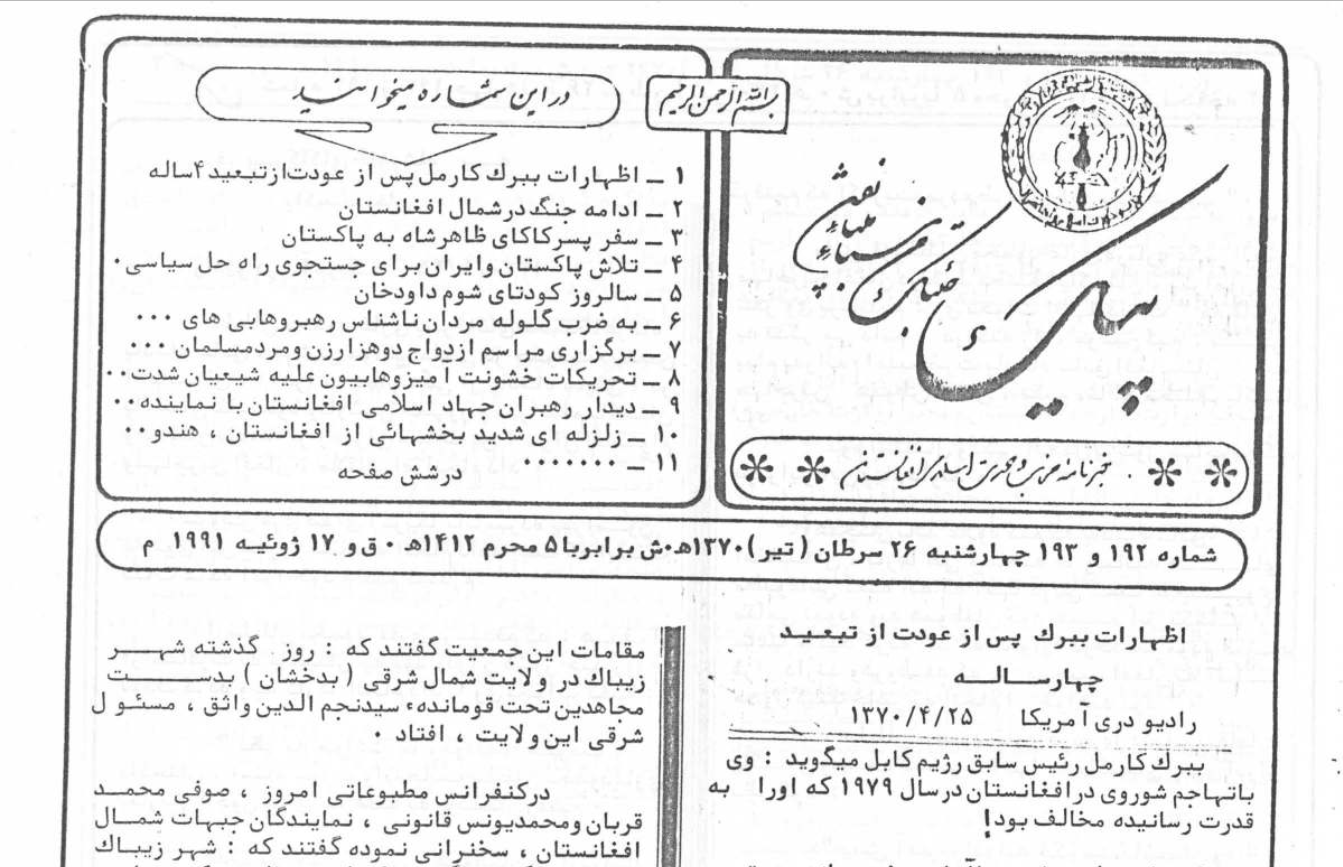 بسم الله الرحمن الرحیم
پیام
خبرنامه حزب و حرکت اسلامی افغانستان
در این شماره میخوانید
۱ ــ اظهارات ببرك كارمل پس از عودت از تبعید ۴ ساله
۲ ــ ادامه جنگ در شمال افغانستان
۳ ــ سفر پسر كاكای ظاهر شاه به پاكستان
۴ ــ تلاش پاكستان و ایران برای جستجوی راه حل سیاسی.
۵ ــ سالروز كودتای شوم داود خان
۶ ــ به ضرب گلوله مردان ناشناس رهبر وهابی های ...
۷ ــ برگزاری مراسم ازدواج دو هزار زن و مرد مسلمان ...
۸ ــ تحریكات خشونت آمیز وهابیون علیه شیعیان شدت..
۹ ــ دیدار رهبران جهاد اسلامی افغانستان با نماینده..
۱۰ ــ زلزله ای شدید بخشهائی از افغانستان ، هندو..
۱۱ ــ ........
در شش صفحه
شماره ۱۹۲ و ۱۹۳ چهارشنبه ۲۶ سرطان (تیر) ۱۳۷۰ هـ.ش برابر با ۵ محرم ۱۴۱۲ هـ.ق و ۱۷ ژوئیه ۱۹۹۱ م
اظهارات ببرك پس از عودت از تبعید
چهار ساله
رادیو دری آمریكا ۱۳۷۰/۴/۲۵
ببرك كارمل رئیس سابق رژیم كابل میگوید : وی
با تهاجم شوروی در افغانستان در سال ۱۹۷۹ كه او را به
قدرت رسانیده مخالف بود!
مقامات این جمعیت گفتند كه : روز گذشته شهر
زیباك در ولایت شمال شرقی ( بدخشان ) بدست
مجاهدین تحت قوماندهٔ سید نجم الدین واثق ، مسئول
شرقی این ولایت ، افتاد .
در كنفرانس مطبوعاتی امروز ، صوفی محمد
قربان و محمد یونس قانونی ، نمایندگان جبهات شمال
افغانستان ، سخنرانی نموده گفتند كه : شهر زیباك